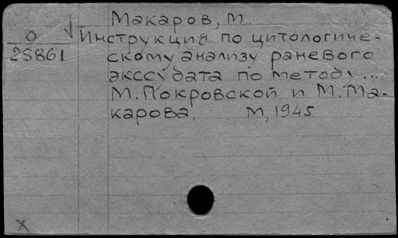 Макаров, М.
О
25861
Инструкция по цитологиче-
скому анализу раневого
экссудата по методу ...
М. Покровской и М. Ма-
карова. М, 1945
х